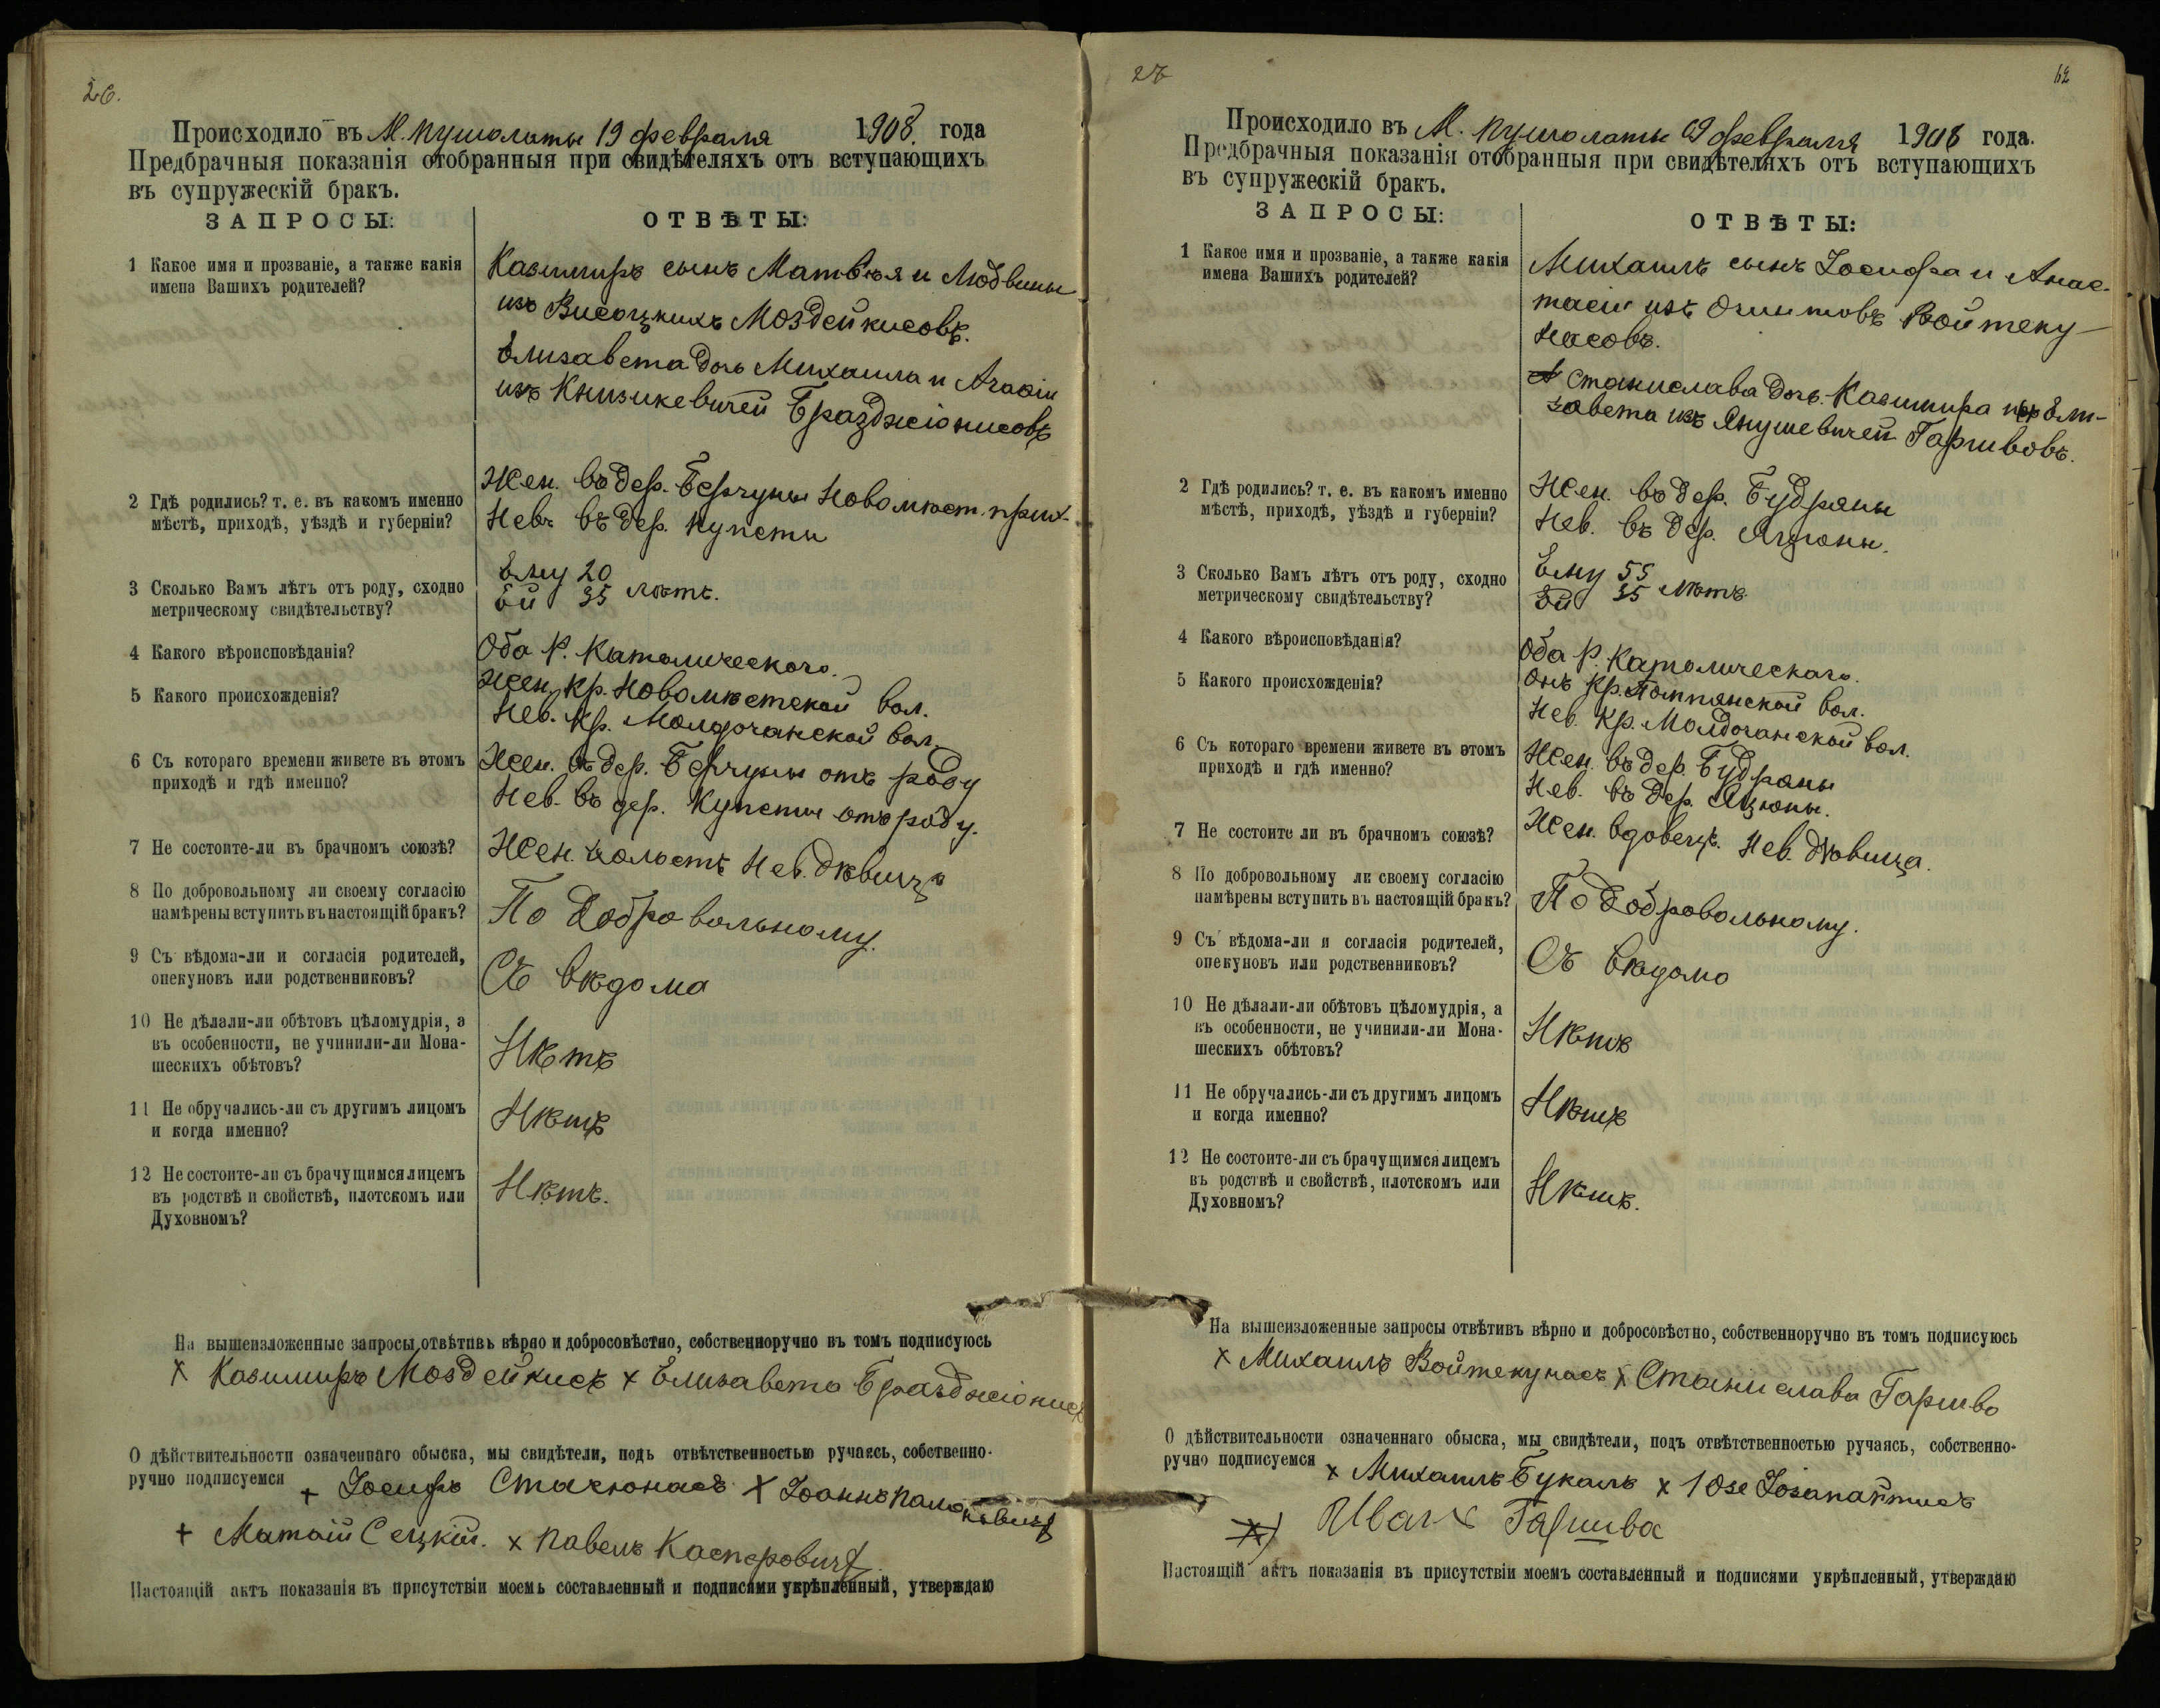 26.
Происходило въ М. Пушолаты 19 февраля 1908. года
Предбрачныя показанія отобранныя при свидѣтеляхъ отъ вступающихъ
въ супружескій бракъ.
ЗАПРОСЫ:
ОТВѢТЫ:
1 Какое имя и прозваніе, а также какія
имена Вашихъ родителей?
Казимиръ сынъ Матвѣя и Людвины
изъ Висоцкихъ Моздейкисовъ.
Елизавета дочь Михаила и Агафіи
изъ Книзикевичей Бразджіонисовъ
2 Гдѣ родились? т. е. въ какомъ именно
мѣстѣ, приходѣ, уѣздѣ и губерніи?
Жен. въ дер. Берчуны Новомѣст. прих.
Нев. въ дер. Купсты
3 Сколько Вамъ лѣтъ отъ роду, сходно
метрическому свидѣтельству?
Ему 20
Ей 35 лѣтъ.
4 Какого вѣроисповѣданія?
Оба Р. Католическаго.
5 Какого происхожденія?
Жен. Кр. Новомѣстской вол.
Нев. Кр. Молдочанской вол.
6 Съ котораго времени живете въ этомъ
приходѣ и гдѣ именно?
Жен. въ дер. Берчуны отъ роду
Нев. въ дер. Купсты отъ роду.
7 Не состоите-ли въ брачномъ союзѣ?
Жен. холостъ Нев. дѣвица
8 По добровольному ли своему согласію
намѣрены вступить въ настоящій бракъ?
По добровольному.
9 Съ вѣдома-ли и согласія родителей,
опекуновъ или родственниковъ?
Съ вѣдома
10 Не дѣлали-ли обѣтовъ цѣломудрія, а
въ особенности, не учинили-ли Мона-
шескихъ обѣтовъ?
Нѣтъ
11 Не обручались-ли съ другимъ лицомъ
и когда именно?
Нѣтъ
12 Не состоите-ли съ брачущимся лицемъ
въ родствѣ и свойствѣ, плотскомъ или
Духовномъ?
Нѣтъ.
На вышеизложенные запросы отвѣтивъ вѣрно и добросовѣстно, собственноручно въ томъ подписуюсь
х Казимиръ Моздейкисъ х Елизавета Бразджіонисъ
О дѣйствительности означеннаго обыска, мы свидѣтели, подъ отвѣтственностью ручаясь, собственно-
ручно подписуемся + Іосифъ Стасюнасъ х Іоаннъ
+ Матѳій Сецкій. х Павелъ Касперовичъ.
Настоящій актъ показанія въ присутствіи моемъ составленный и подписями укрѣпленный, утверждаю
27
62
Происходило въ М. Пушолаты 19 февраля 1908 года.
Предбрачныя показанія отобранныя при свидѣтеляхъ отъ вступающихъ
въ супружескій бракъ.
ЗАПРОСЫ:
ОТВѢТЫ:
1 Какое имя и прозваніе, а также какія
имена Вашихъ родителей?
Михаилъ сынъ Іосифа и Анас-
тасіи изъ Очинтовъ Войтеку-
насовъ.
Станислава дочь Казимира и Ели-
завета изъ Янушевичей Гаршвовъ.
2 Гдѣ родились? т. е. въ какомъ именно
мѣстѣ, приходѣ, уѣздѣ и губерніи?
Жен. въ дер. Будряны
Нев. въ дер. Яцюны.
3 Сколько Вамъ лѣтъ отъ роду, сходно
метрическому свидѣтельству?
Ему 55
Ей 35 лѣтъ.
4 Какого вѣроисповѣданія?
Оба Р. Католическаго.
5 Какого происхожденія?
Онъ Кр. Помпянской вол.
Нев. Кр. Молдочанской вол.
6 Съ котораго времени живете въ этомъ
приходѣ и гдѣ именно?
Жен. въ дер. Будряны
Нев. въ дер. Яцюны.
7 Не состоите ли въ брачномъ союзѣ?
Жен. вдовецъ. Нев. дѣвица.
8 По добровольному ли своему согласію
намѣрены вступить въ настоящій бракъ?
По добровольному.
9 Съ вѣдома-ли и согласія родителей,
опекуновъ или родственниковъ?
Съ вѣдома
10 Не дѣлали-ли обѣтовъ цѣломудрія, а
въ особенности, не учинили-ли Мона-
шескихъ обѣтовъ?
Нѣтъ
11 Не обручались-ли съ другимъ лицомъ
и когда именно?
Нѣтъ
12 Не состоите-ли съ брачущимся лицемъ
въ родствѣ и свойствѣ, плотскомъ или
Духовномъ?
Нѣтъ.
На вышеизложенные запросы отвѣтивъ вѣрно и добросовѣстно, собственноручно въ томъ подписуюсь
х Михаилъ Войтекунасъ х Станислава Гаршво
О дѣйствительности означеннаго обыска, мы свидѣтели, подъ отвѣтственностью ручаясь, собственно-
ручно подписуемся х Михаилъ Букалъ х Юзе Іозапайтисъ
х) Иванъ Гаршва
Настоящій актъ показанія въ присутствіи моемъ составленный и подписями укрѣпленный, утверждаю